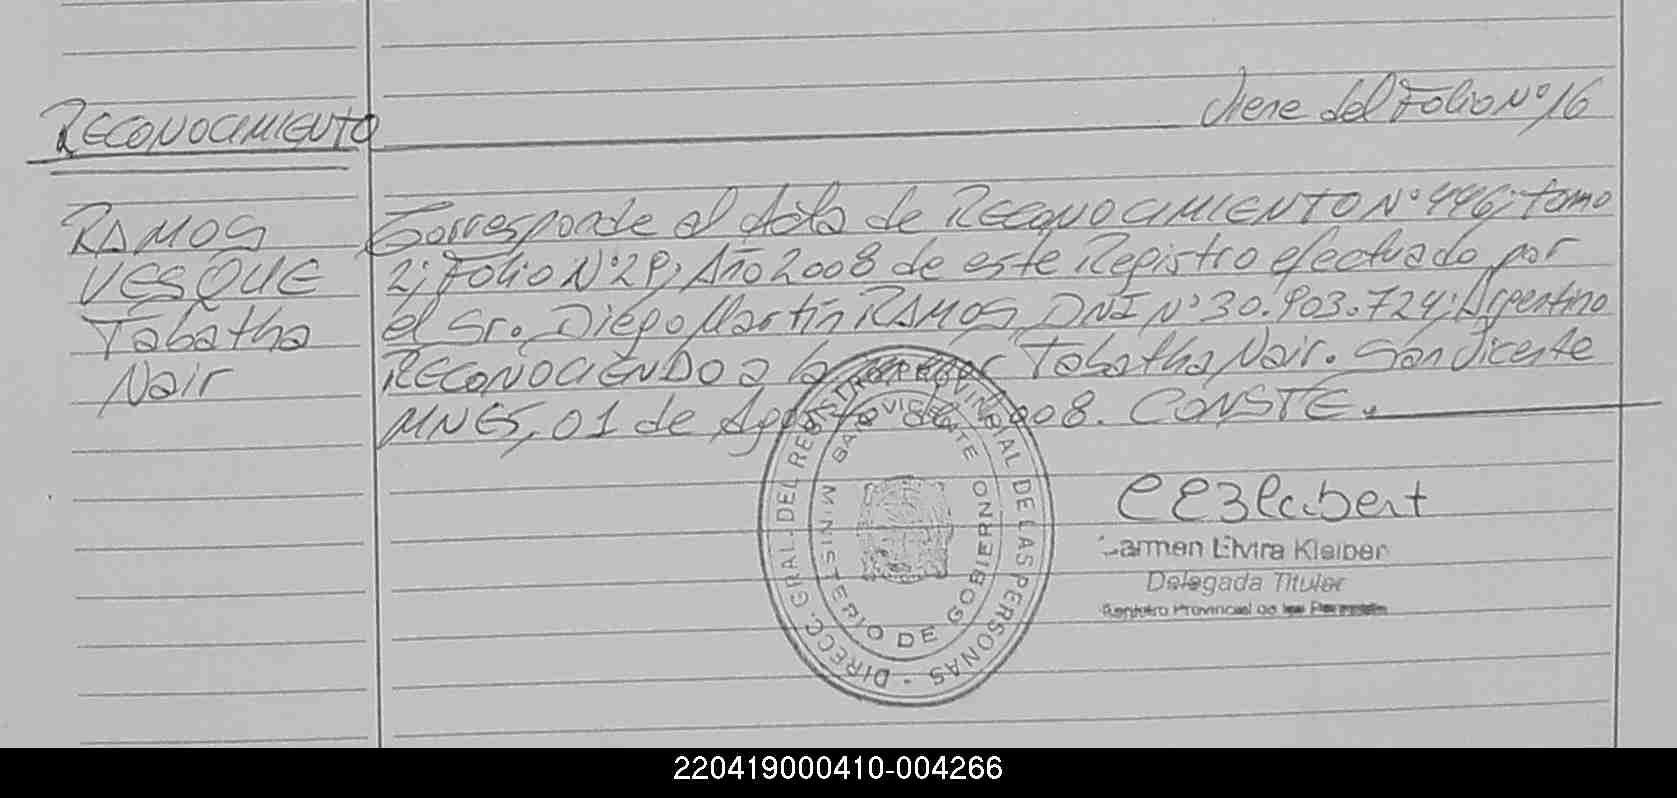 RECONOCIMIENTO
Viene del Folio Nº 16
RAMOS
VESQUE
Tabatha
Nair
Corresponde al Acta de RECONOCIMIENTO Nº 446; tomo
2; Folio Nº 29, Año 2008 de este Registro efectuado por
el Sr. Diego Martín RAMOS, DNI Nº 30.903.724; Argentino
RECONOCIENDO a la menor Tabatha Nair. San Vicente
MNES, 01 de Agosto de 2008. CONSTE.
DIRECC. GRAL. DEL REGISTRO PROVINCIAL DE LAS PERSONAS
SAN VICENTE
MINISTERIO DE GOBIERNO
Carmen Elvira Kleiber
Delegada Titular
Registro Provincial de las Personas
220419000410-004266